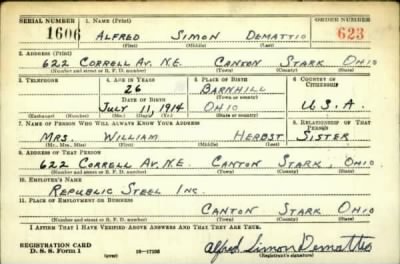 SERIAL NUMBER 1. NAME (Print) ORDER NUMBER
1606 ALFRED SIMON DEMATTIO 623
(First) (Middle) (Last)
2. ADDRESS (Print)
622 CORRELL AV. N.E. CANTON STARK OHIO
(Number and street or R. F. D. number) (Town) (County) (State)
3. TELEPHONE 4. AGE IN YEARS 5. PLACE OF BIRTH 6. COUNTRY OF CITIZENSHIP
26 BARNHILL
DATE OF BIRTH (Town or county)
JULY 11, 1914 OHIO U.S.A.
(Exchange) (Number) (Mo.) (Day) (Yr.) (State or country)
7. NAME OF PERSON WHO WILL ALWAYS KNOW YOUR ADDRESS 8. RELATIONSHIP OF THAT PERSON
MRS. WILLIAM HERBST SISTER
(Mr., Mrs., Miss) (First) (Middle) (Last)
9. ADDRESS OF THAT PERSON
622 CORRELL AV. N.E. CANTON STARK, OHIO.
(Number and street or R. F. D. number) (Town) (County) (State)
10. EMPLOYER'S NAME
REPUBLIC STEEL INC.
11. PLACE OF EMPLOYMENT OR BUSINESS
CANTON STARK OHIO
(Number and street or R. F. D. number) (Town) (County) (State)
I AFFIRM THAT I HAVE VERIFIED ABOVE ANSWERS AND THAT THEY ARE TRUE.
REGISTRATION CARD
D. S. S. Form 1 (over) Alfred Simon Demattio
(Registrant's signature)